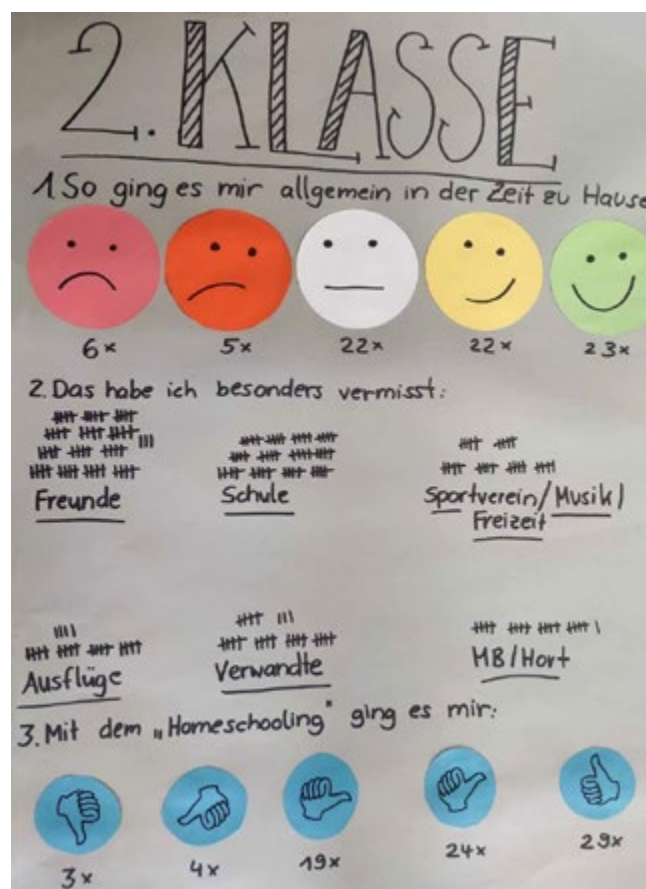 2. KLASSE
1 So ging es mir allgemein in der Zeit zu Hause
6x 5x 22x 22x 23x
2. Das habe ich besonders vermisst:
Freunde Schule Sportverein/Musik/
Freizeit
Ausflüge Verwandte MB/Hort
3. Mit dem „Homeschooling" ging es mir:
3x 4x 19x 24x 29x